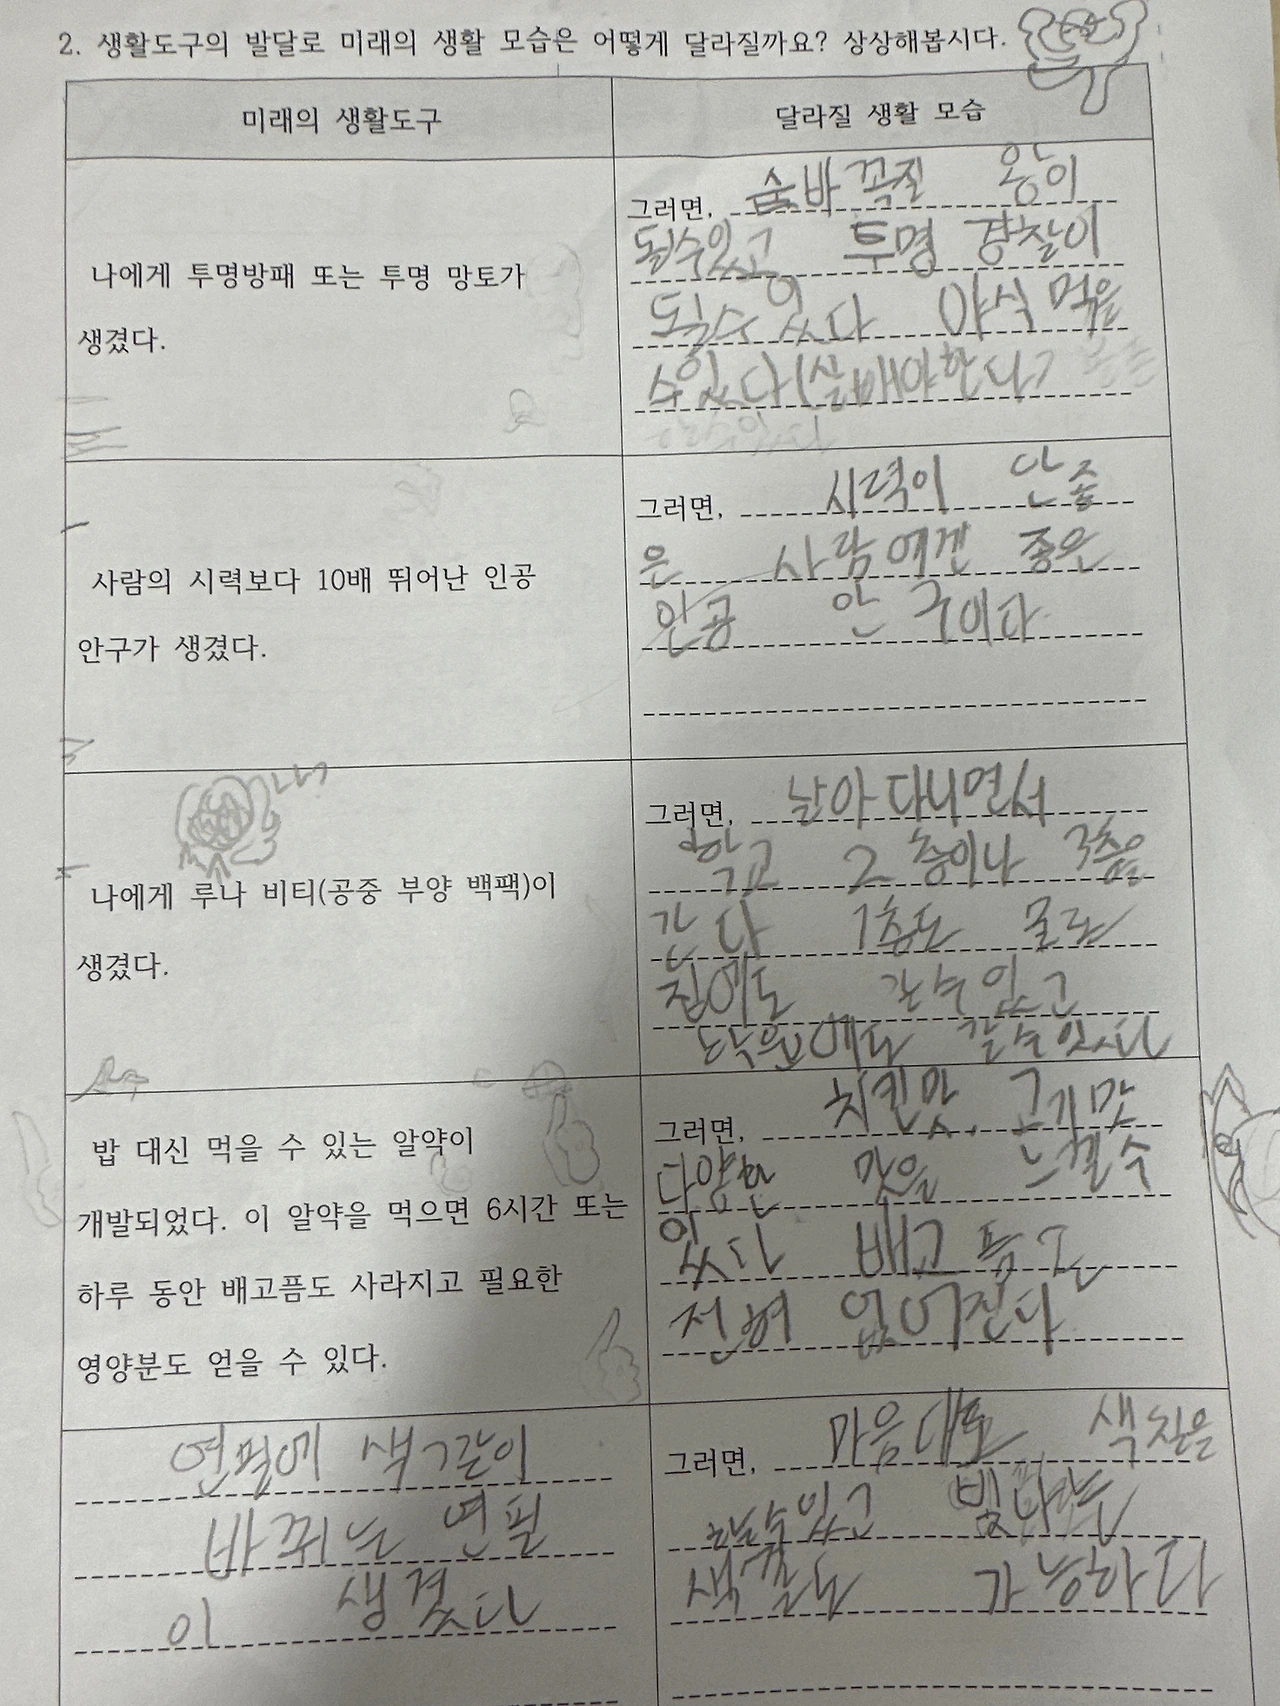 2. 생활도구의 발달로 미래의 생활 모습은 어떻게 달라질까요? 상상해봅시다.
미래의 생활도구
달라질 생활 모습
나에게 투명방패 또는 투명 망토가
생겼다.
그러면, 숨바꼭질 왕이
될수있고 투명 경찰이
될수있다 야식 먹을
수있다(실
사람의 시력보다 10배 뛰어난 인공
안구가 생겼다.
그러면, 시력이 안좋
은 사람에겐 좋은
인공 안구이다.
나에게 루나 비티(공중 부양 백팩)이
생겼다.
그러면, 날아다니면서
학교 2층이나 3층을
간다 1층도 물론
집에도 갈수있고
학원에도 갈수있다
밥 대신 먹을 수 있는 알약이
개발되었다. 이 알약을 먹으면 6시간 또는
하루 동안 배고픔도 사라지고 필요한
영양분도 얻을 수 있다.
그러면, 치킨맛, 고기맛
다양한 맛을 느낄수
있다 배고픔도
전혀 없어진다
연필에 색깔이
바뀌는 연필
이 생겼다
그러면, 마음대로 색칠을
할수있고 빛나는
색깔도 가능하다